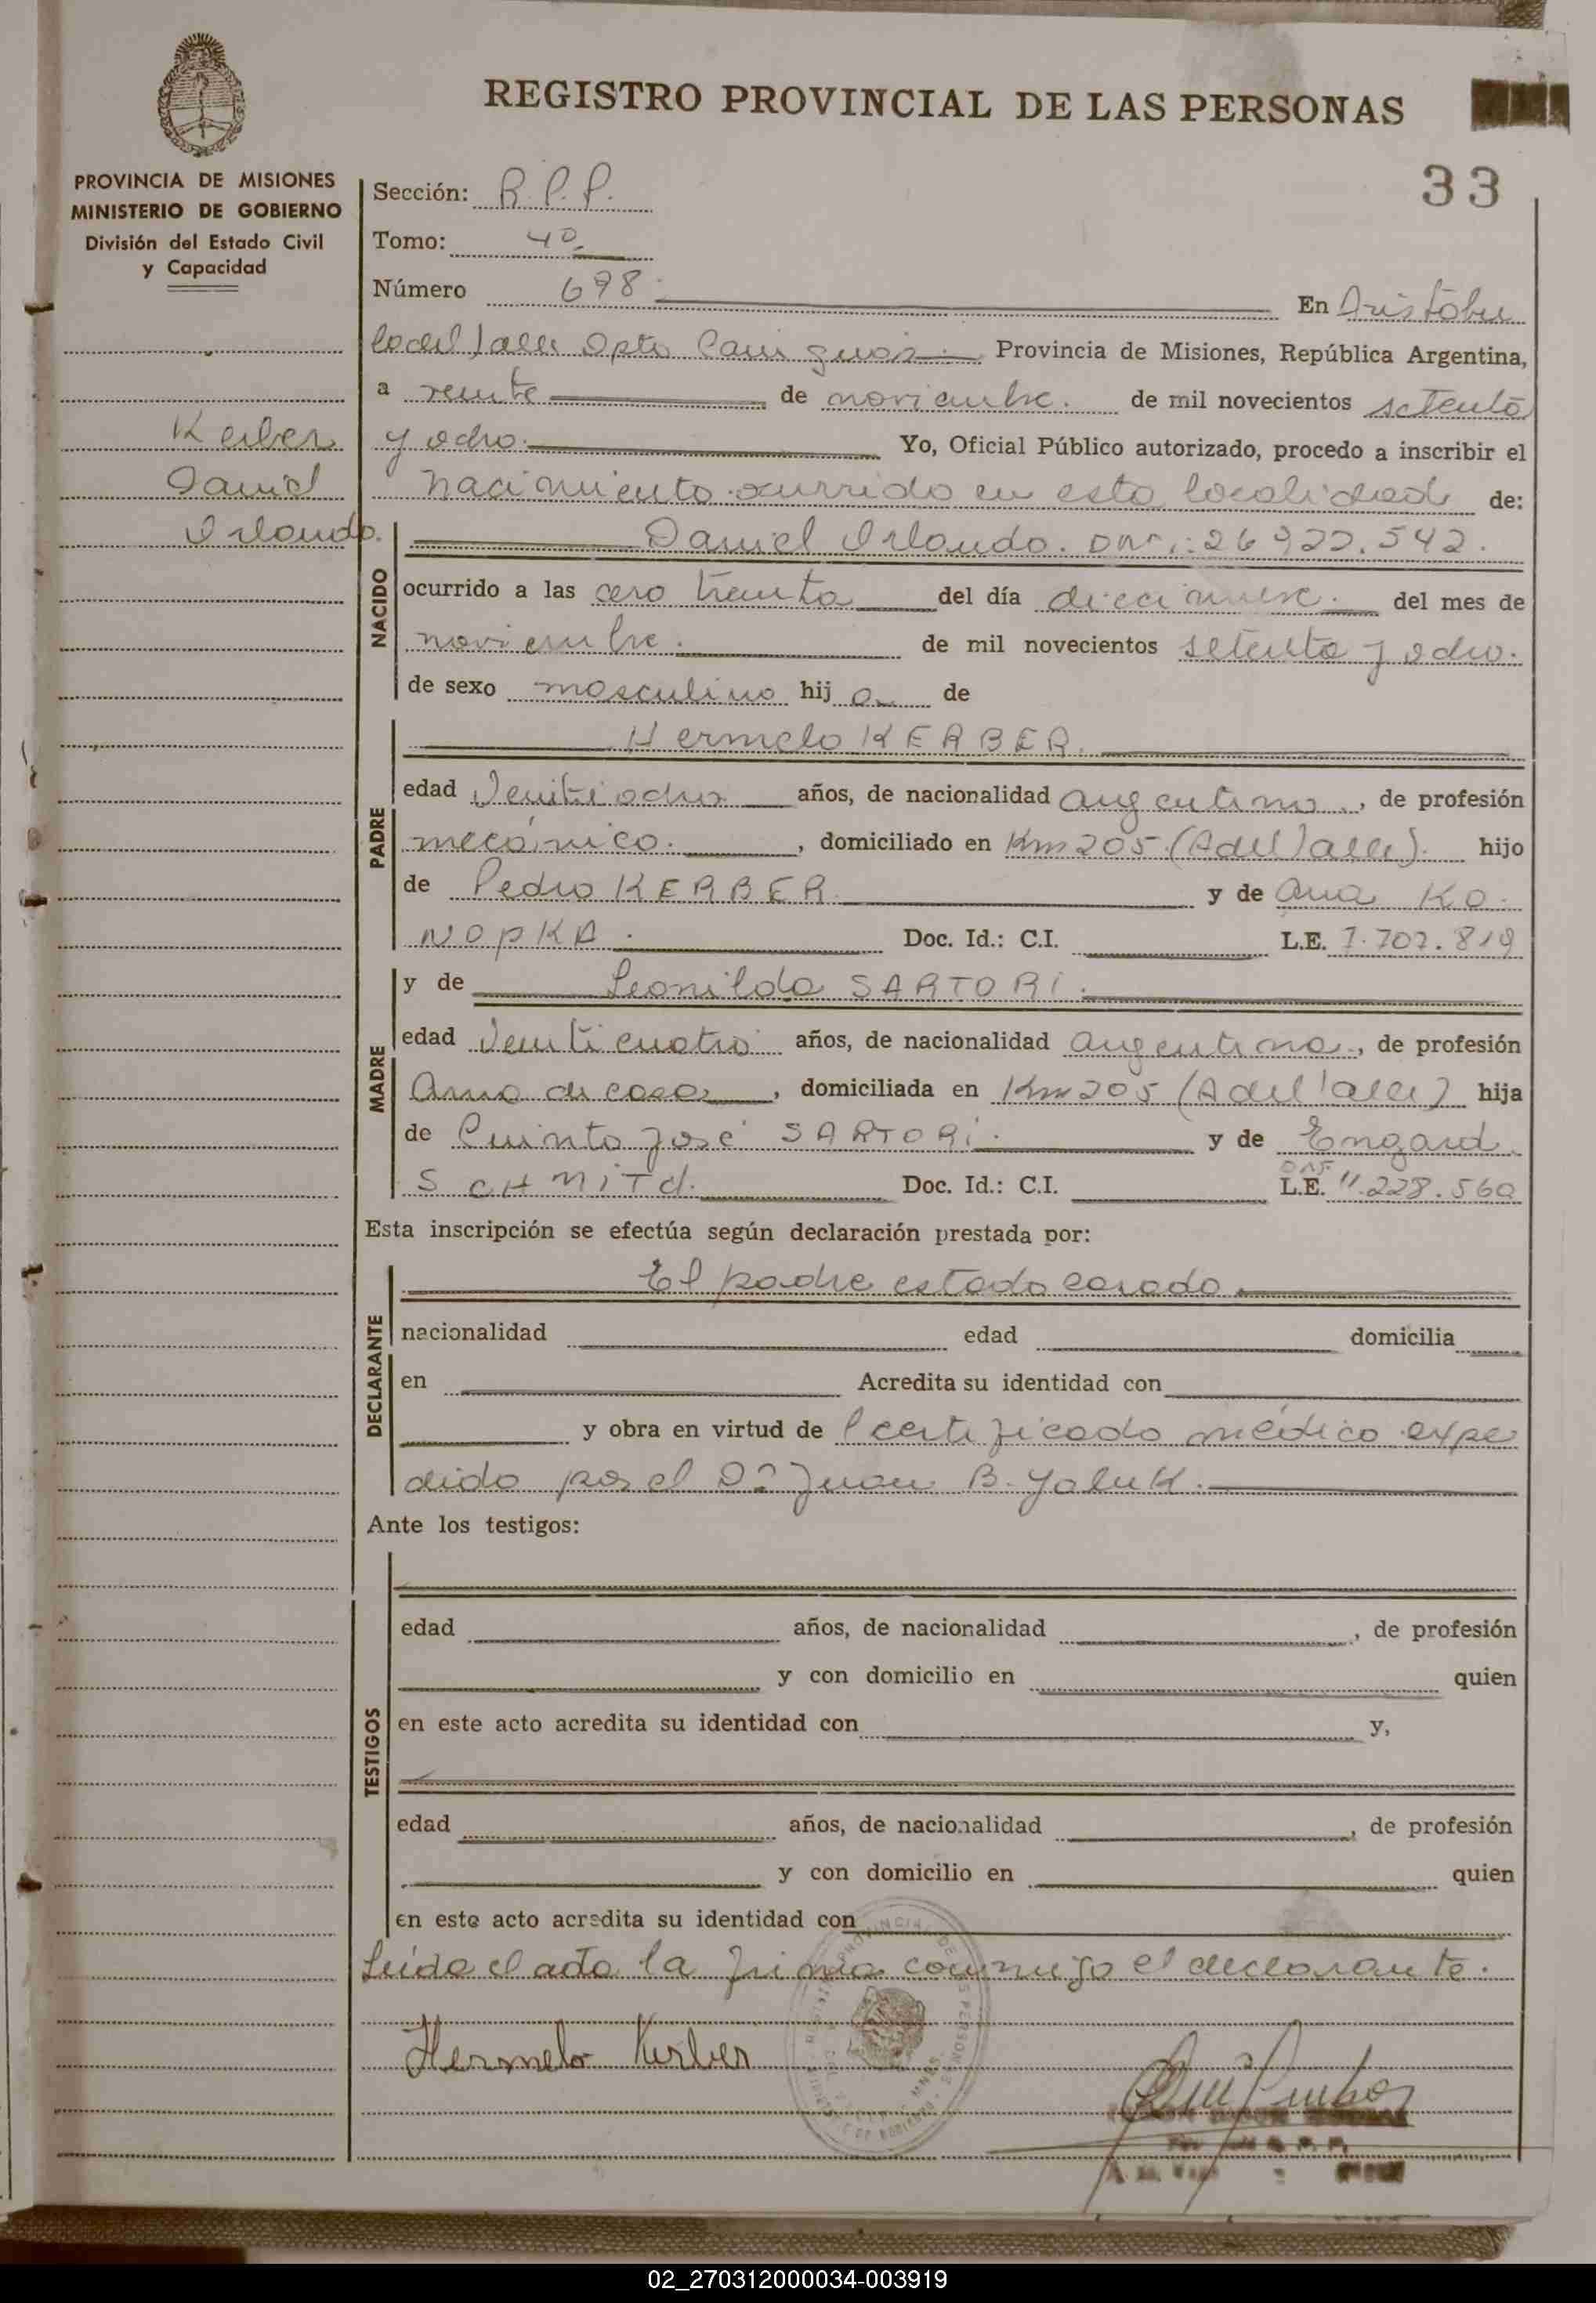 REGISTRO PROVINCIAL DE LAS PERSONAS
33
PROVINCIA DE MISIONES
MINISTERIO DE GOBIERNO
División del Estado Civil
y Capacidad
Kerber
Daniel
Orlando.
Sección: R.P.P.
Tomo: 4º
Número 698. En Aristóbu
lo del Valle Dpto Cainguás. Provincia de Misiones, República Argentina,
a veinte de noviembre. de mil novecientos setenta
y ocho. Yo, Oficial Público autorizado, procedo a inscribir el
nacimiento ocurrido en esta localidad de:
NACIDO
Daniel Orlando. DNI.: 26.922.542.
ocurrido a las cero treinta del día diecinueve. del mes de
noviembre. de mil novecientos setenta y ocho.
de sexo masculino hij o de
PADRE
Hermelo KERBER.
edad Veintiocho años, de nacionalidad argentino, de profesión
mecánico. , domiciliado en Km 205 (A del Valle). hijo
de Pedro KERBER y de Ana KO
NOPKA. Doc. Id.: C.I. L.E. 7.707.819
MADRE
y de Leonilda SARTORI.
edad Veinticuatro años, de nacionalidad argentina, de profesión
Ama de casa , domiciliada en Km 205 (A del Valle) hija
de Quinto José SARTORI. y de Emgard
SCHMITd. Doc. Id.: C.I. L.E. 11.228.560
Esta inscripción se efectúa según declaración prestada por:
DECLARANTE
El padre estado casado
nacionalidad edad domicilia
en Acredita su identidad con
y obra en virtud de l certificado médico expe
dido por el Dr Juan B. Yaluk.
Ante los testigos:
TESTIGOS
edad años, de nacionalidad , de profesión
y con domicilio en quien
en este acto acredita su identidad con y,
edad años, de nacionalidad , de profesión
y con domicilio en quien
en este acto acredita su identidad con
Leída el acta la firma conmigo el declarante.
Hermelo Kerber
02_270312000034-003919